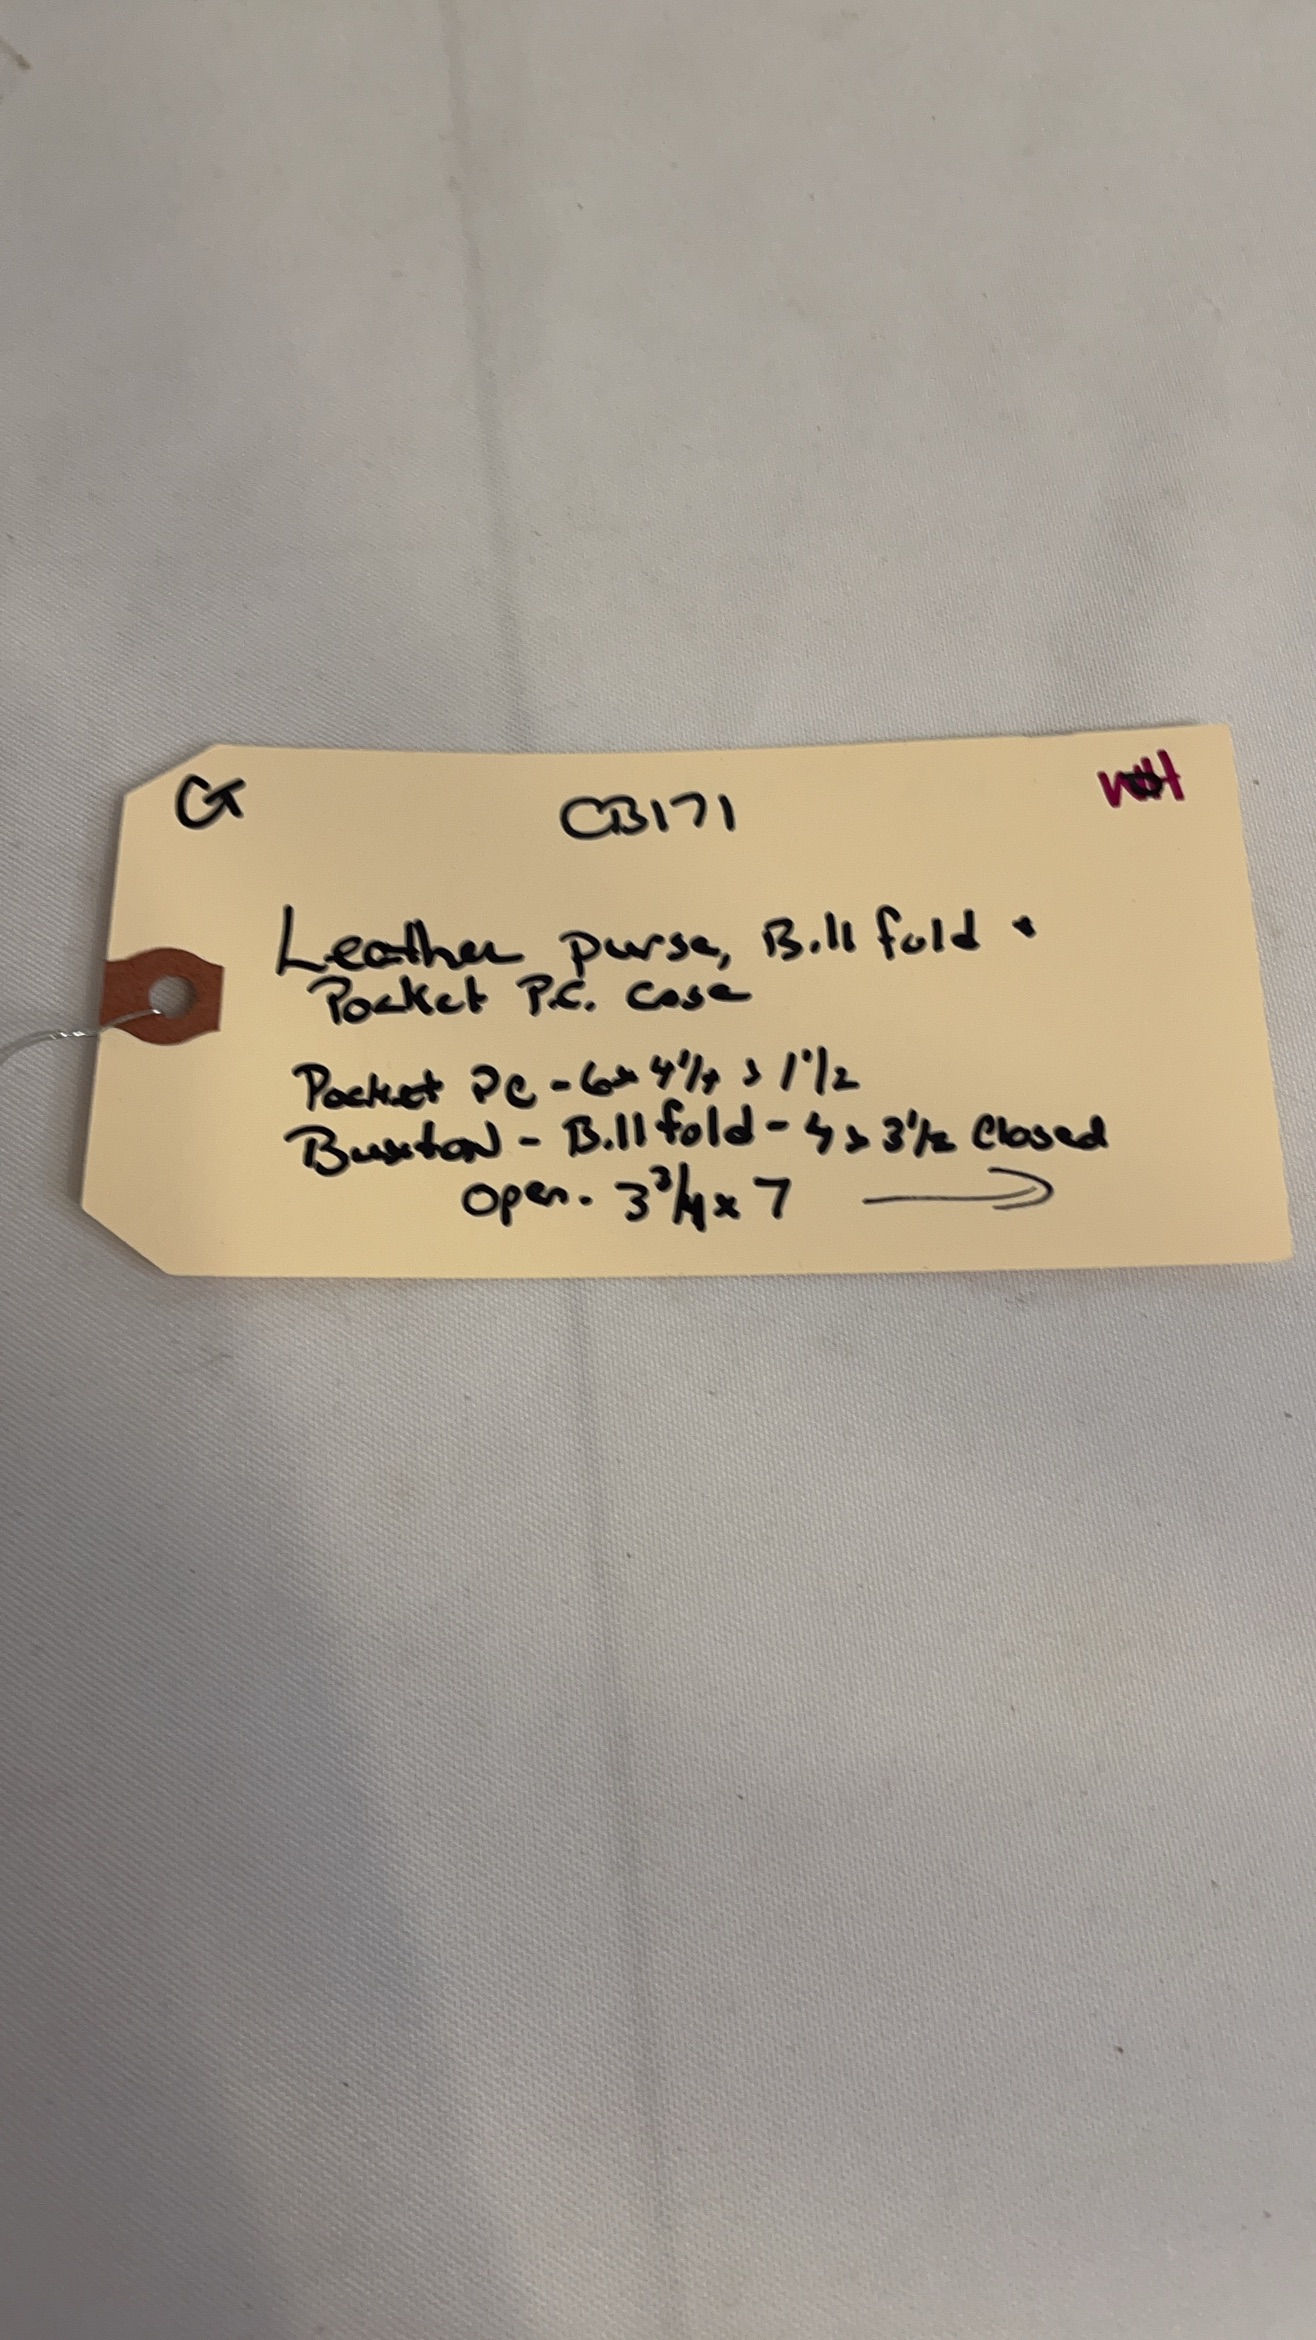 G CB171 WH
Leather purse, Billfold +
Pocket P.C. Case
Pocket PC - 6 x 4 1/4 x 1 1/2
Buxton - Billfold - 4 x 3 1/2 Closed
Open - 3 3/4 x 7 →